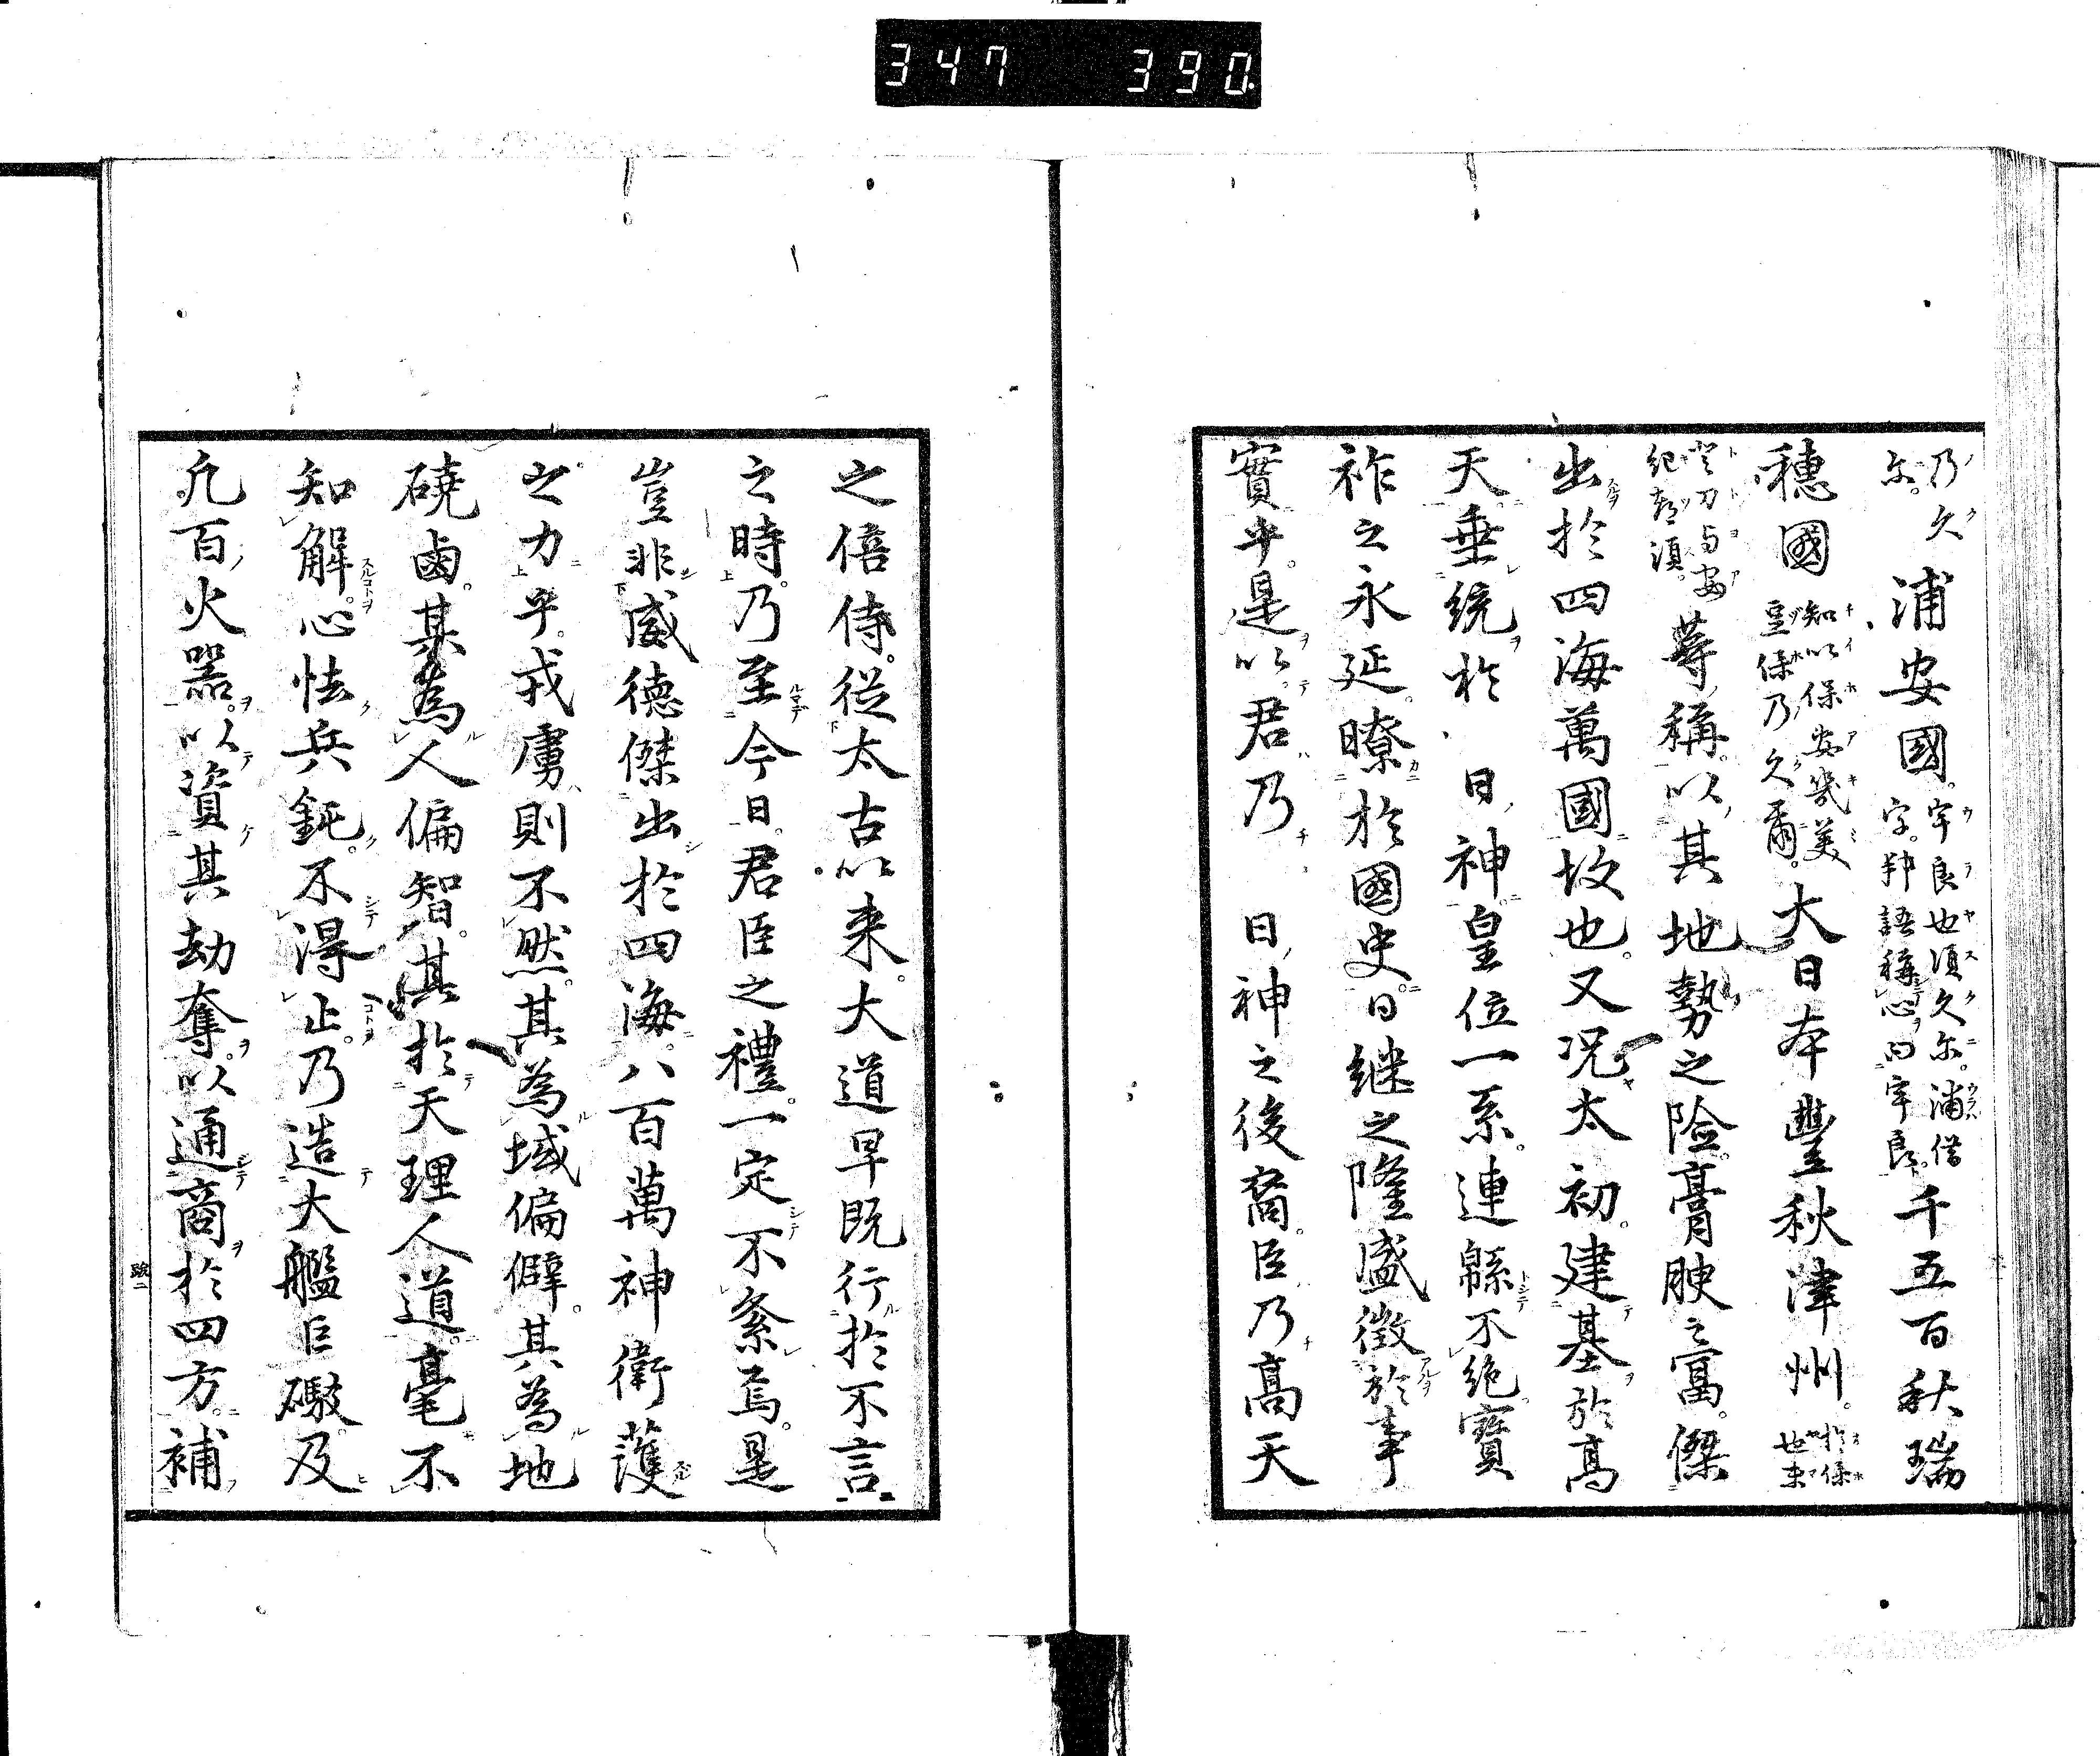 347 390
乃久尓。浦安國。宇良也須久尓。浦借字。邦語稱心曰宇良。千五百秋瑞
穗國知以保安幾美豆保乃久爾。大日本豐秋津州。於保也末
登刀与安紀都須。尊稱。以其地勢之險。膏腴之富。傑
出於四海萬國故也。又況太初。建基於高
天垂統於 日神皇位一系。連緜不絶。寶
祚之永延。瞭於國史。日継之隆盛徴於事
實乎。是以君乃 日神之後裔。臣乃高天
之僖侍。從太古以来。大道早既行於不言
之時。乃至今日。君臣之禮。一定不紊焉。是
豈非威德傑出於四海。八百萬神衛護
之力乎。戎虜則不然。其為域偏僻。其為地
磽鹵。某為人偏智。其於天理人道。毫不
知解。心怯兵鈍。不得止。乃造大艦巨礮及
凡百火器。以資其劫奪。以通商於四方。補
跋二